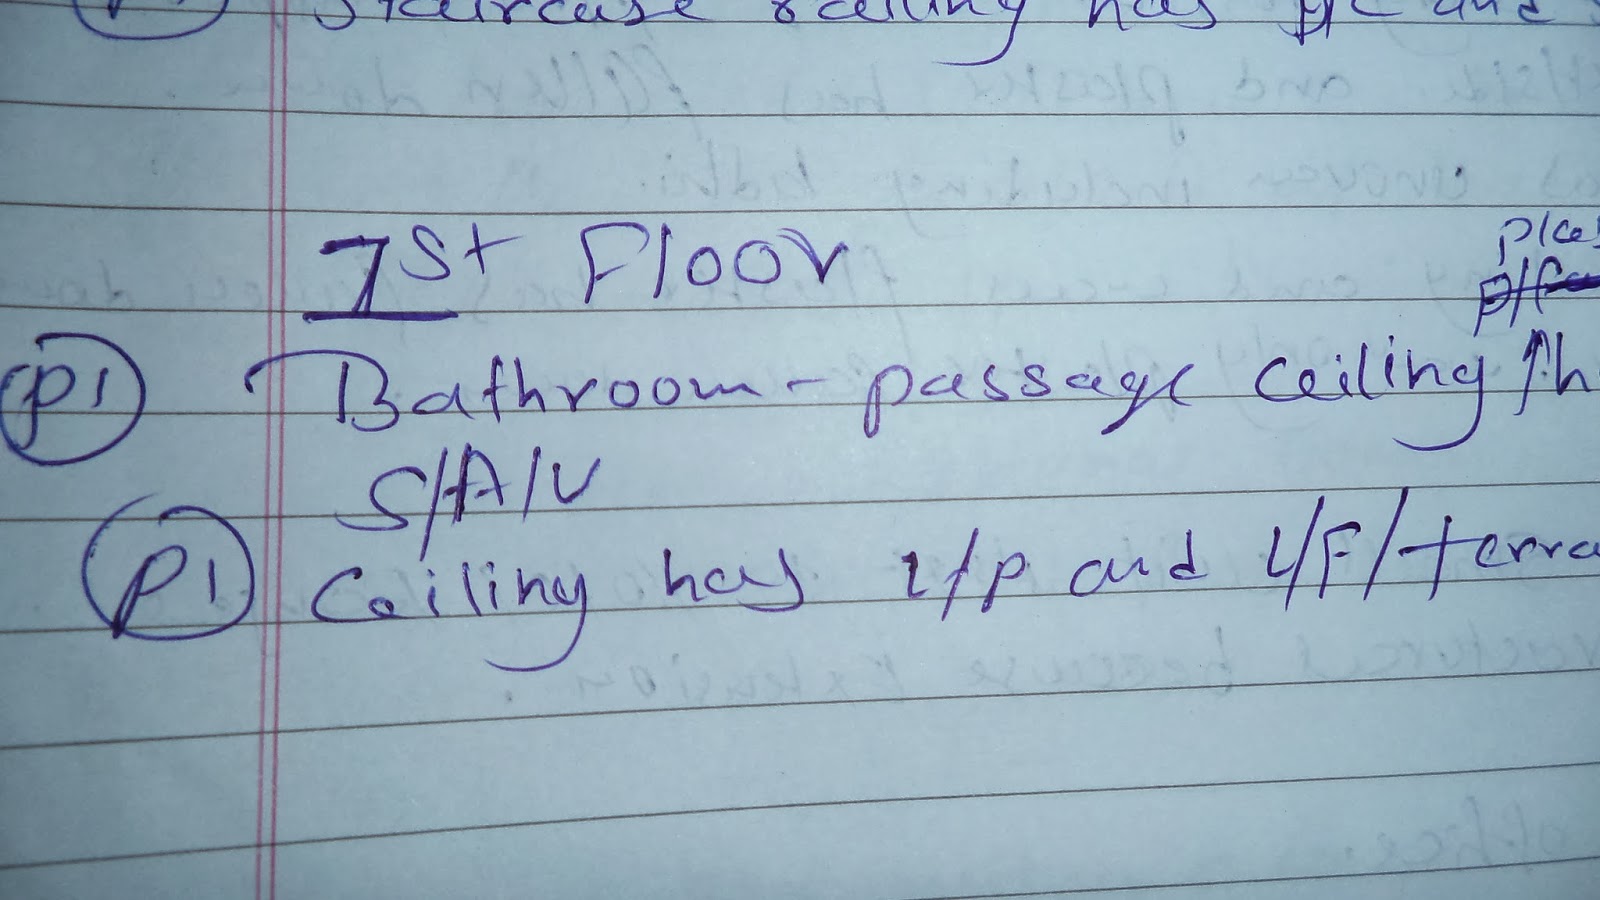 Staircase railing has P/C and
1st Floor
plas
P1 Bathroom - passage Ceiling h
S/A/U
P1 Ceiling has L/P and L/F/terra